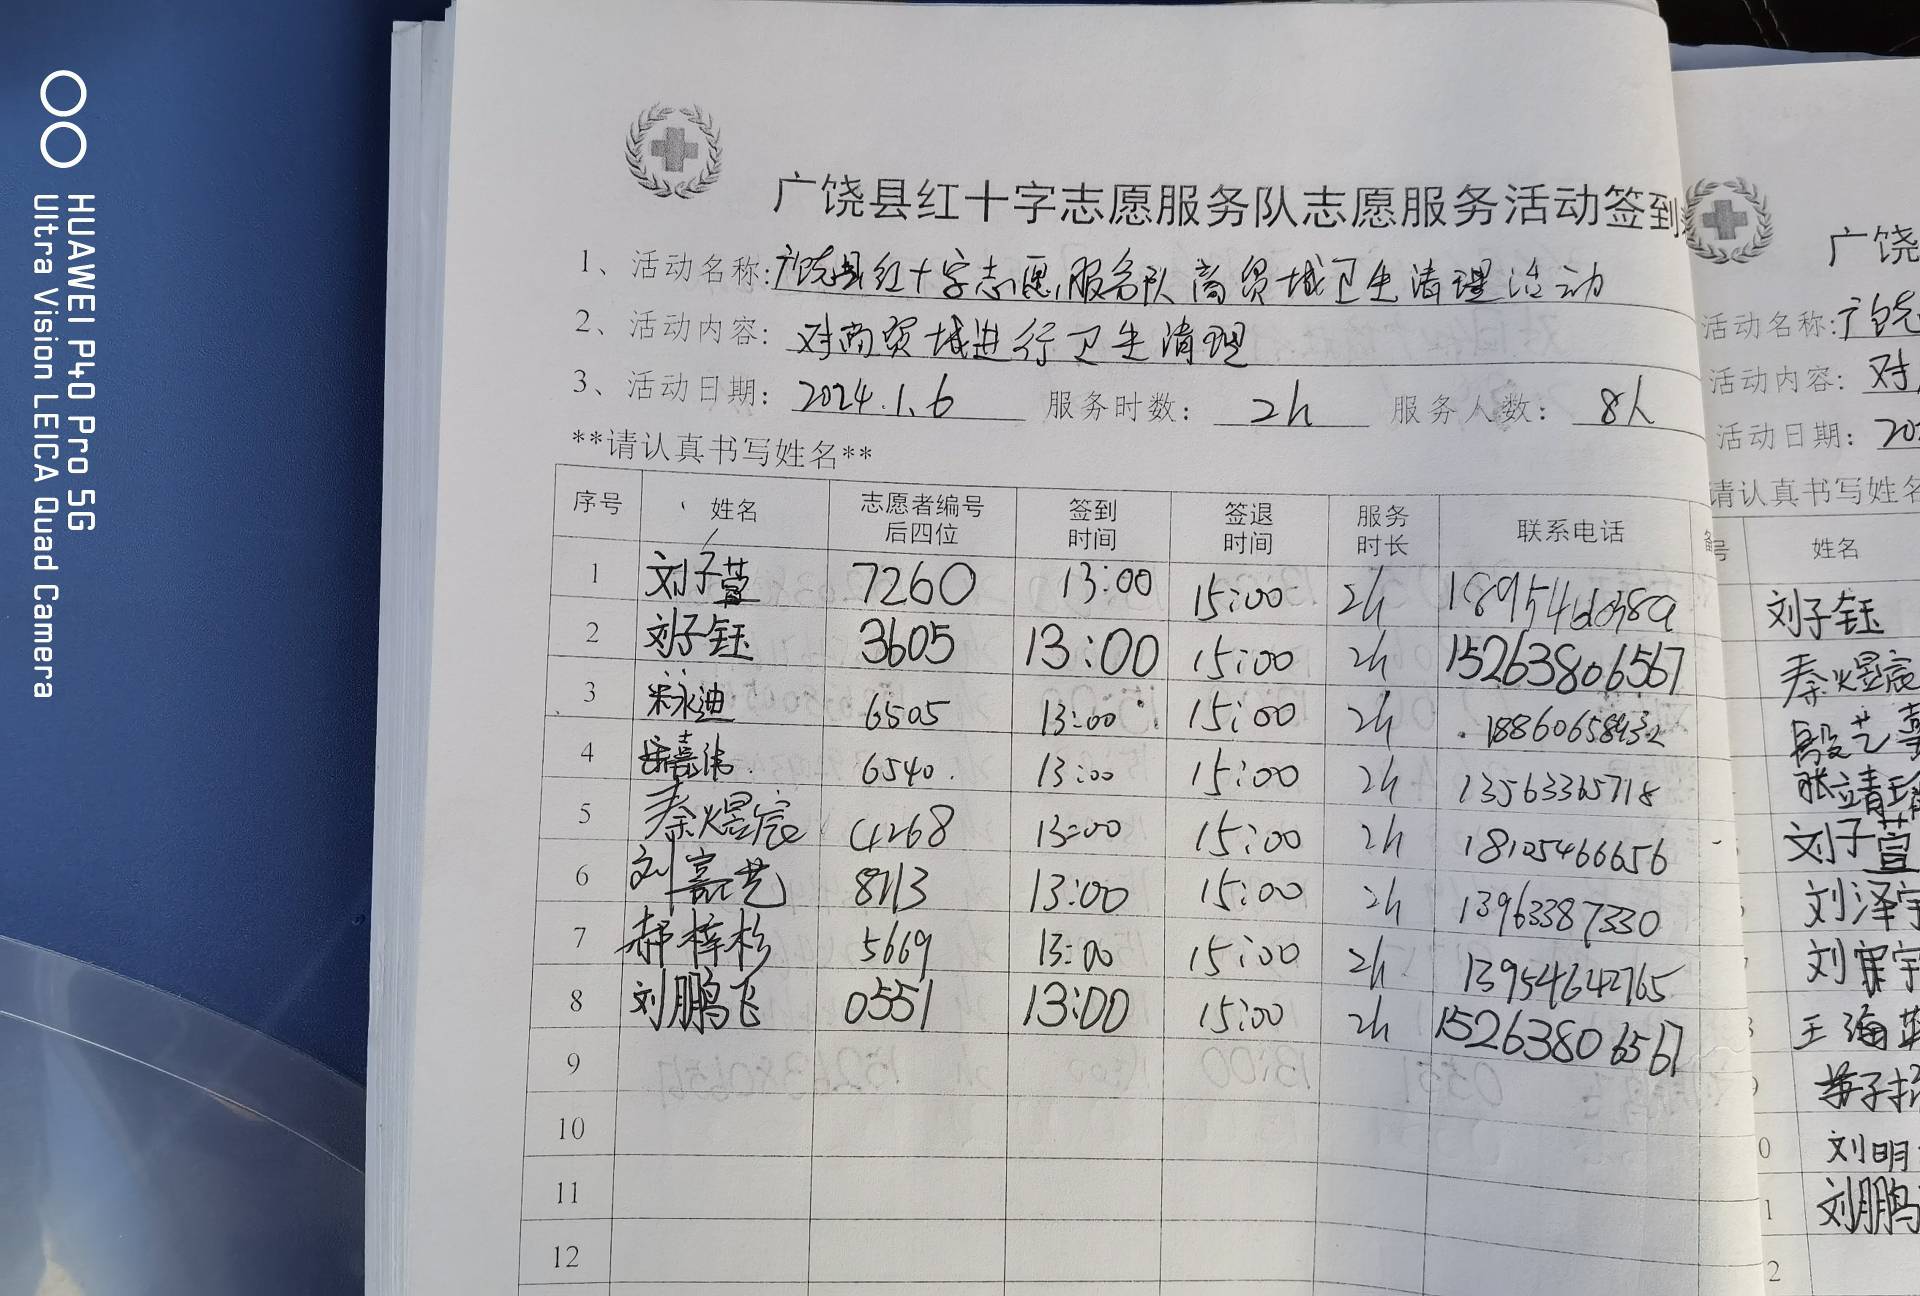 HUAWEI P40 Pro 5G
Ultra Vision LEICA Quad Camera
广饶县红十字志愿服务队志愿服务活动签到
1、活动名称:广饶县红十字志愿服务队商贸城卫生清理活动
2、活动内容: 对商贸城进行卫生清理
3、活动日期: 2024.1.6 服务时数: 2h 服务人数: 8人
**请认真书写姓名**
序号 姓名 志愿者编号后四位 签到时间 签退时间 服务时长 联系电话 备
1 刘子萱 7260 13:00 15:00 2h
2 刘子钰 3605 13:00 15:00 2h 15263806567
3 宋永迪 6505 13:00 15:00 2h 18860658932
4 6540 13:00 15:00 2h 13563365718
5 秦煜宸 4268 13:00 15:00 2h 18105466656
6 刘嘉艺 8713 13:00 15:00 2h 13963387330
7 郝梓杉 5669 13:00 15:00 2h 13954642765
8 刘鹏飞 0551 13:00 15:00 2h 15263806567
9
10
11
12
广饶
活动名称:广饶
活动内容: 对
活动日期: 20
请认真书写姓名
号 姓名
刘子钰
秦煜宸
段艺
张靖
刘子萱
刘泽宇
刘
王海
子
0 刘明
1 刘鹏
2